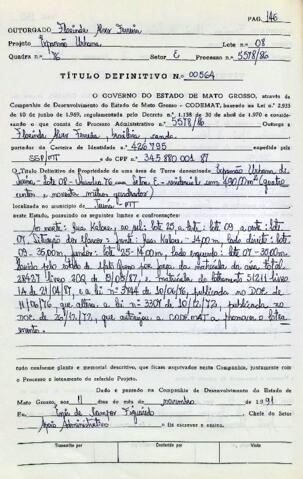 PAG. 146
OUTORGADO Florindo Alves Ferreira
Projeto Expansão Urbana Lote nº 08
Quadra nº 76 Setor E Processo nº 5578/86
TÍTULO DEFINITIVO Nº 00564
O GOVERNO DO ESTADO DE MATO GROSSO, através da
Companhia de Desenvolvimento do Estado de Mato Grosso - CODEMAT, baseado na Lei nº 2.933
de 10 de junho de 1.969, regulamentada pelo Decreto nº 1.138 de 30 de abril de 1.970 e conside-
rando o que consta do Processo Administrativo nº 5578/86 Outorga a
Florindo Alves Ferreira, brasileiro
portador da Carteira de Identidade nº 426795 expedida por
SSP/MT e do CPF nº 345.880.001.87
O Título Definitivo de Propriedade de uma área de Terra denominada Expansão Urbana de
Juina - lote 08 - Quadra 76 setor E - residencial com 490,00m² (Quatro
centos e noventa metros quadrados)
localizada no Juina - MT
neste Estado, possuindo os seguintes limites e confrontações:
Ao norte: lote 09, a oeste: lote
07, Situação dos Marcos: frente: 14,00m, lado direito: lote
09 - 35,00m, fundos: lote 25 - 14,00m, lado esquerdo: lote 07 - 35,00m.
matrícula da área total
28427 livro e matrícula do loteamento
e a lei nº 3744 de 10/06/76, publicada no DOE de
11/06/76 que altera a lei nº 3307 de 10/12/72, publicada no
DOE de 20/12/72, que autoriza a CODEMAT a promover o lotea
mento.
tudo conforme planta e memorial descritivo, que ficam arquivados nesta Companhia, juntamente com
o Processo e loteamento do referido Projeto.
Dado e passado na Companhia de Desenvolvimento do Estado de
Mato Grosso, aos 11 dias do mês de novembro de 1991
Eu, Inês de Campos Figueiredo Chefe do Setor
Apoio Administrativo Os escrever e assina.
Transcrito por Conferido por Visto